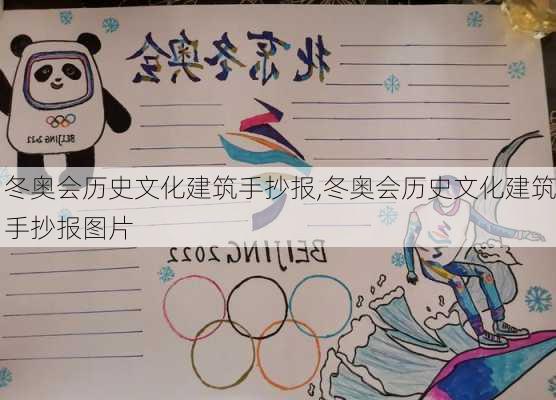 北京冬奥会
BEIJING 2022
冬奥会历史文化建筑手抄报,冬奥会历史文化建筑
手抄报图片
BEIJING 2022